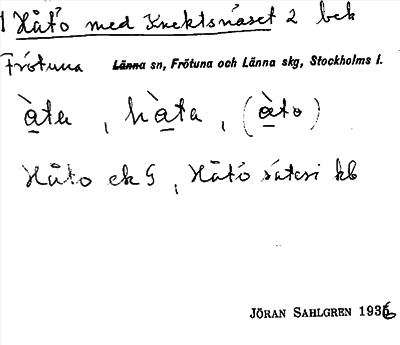 1 Håtö med Knektsnäset 2 bek
Frötuna Länna sn, Frötuna och Länna skg, Stockholms l.
àta, hàta, (àto)
Håto ek 5, Håtö säteri kb
JÖRAN SAHLGREN 1936